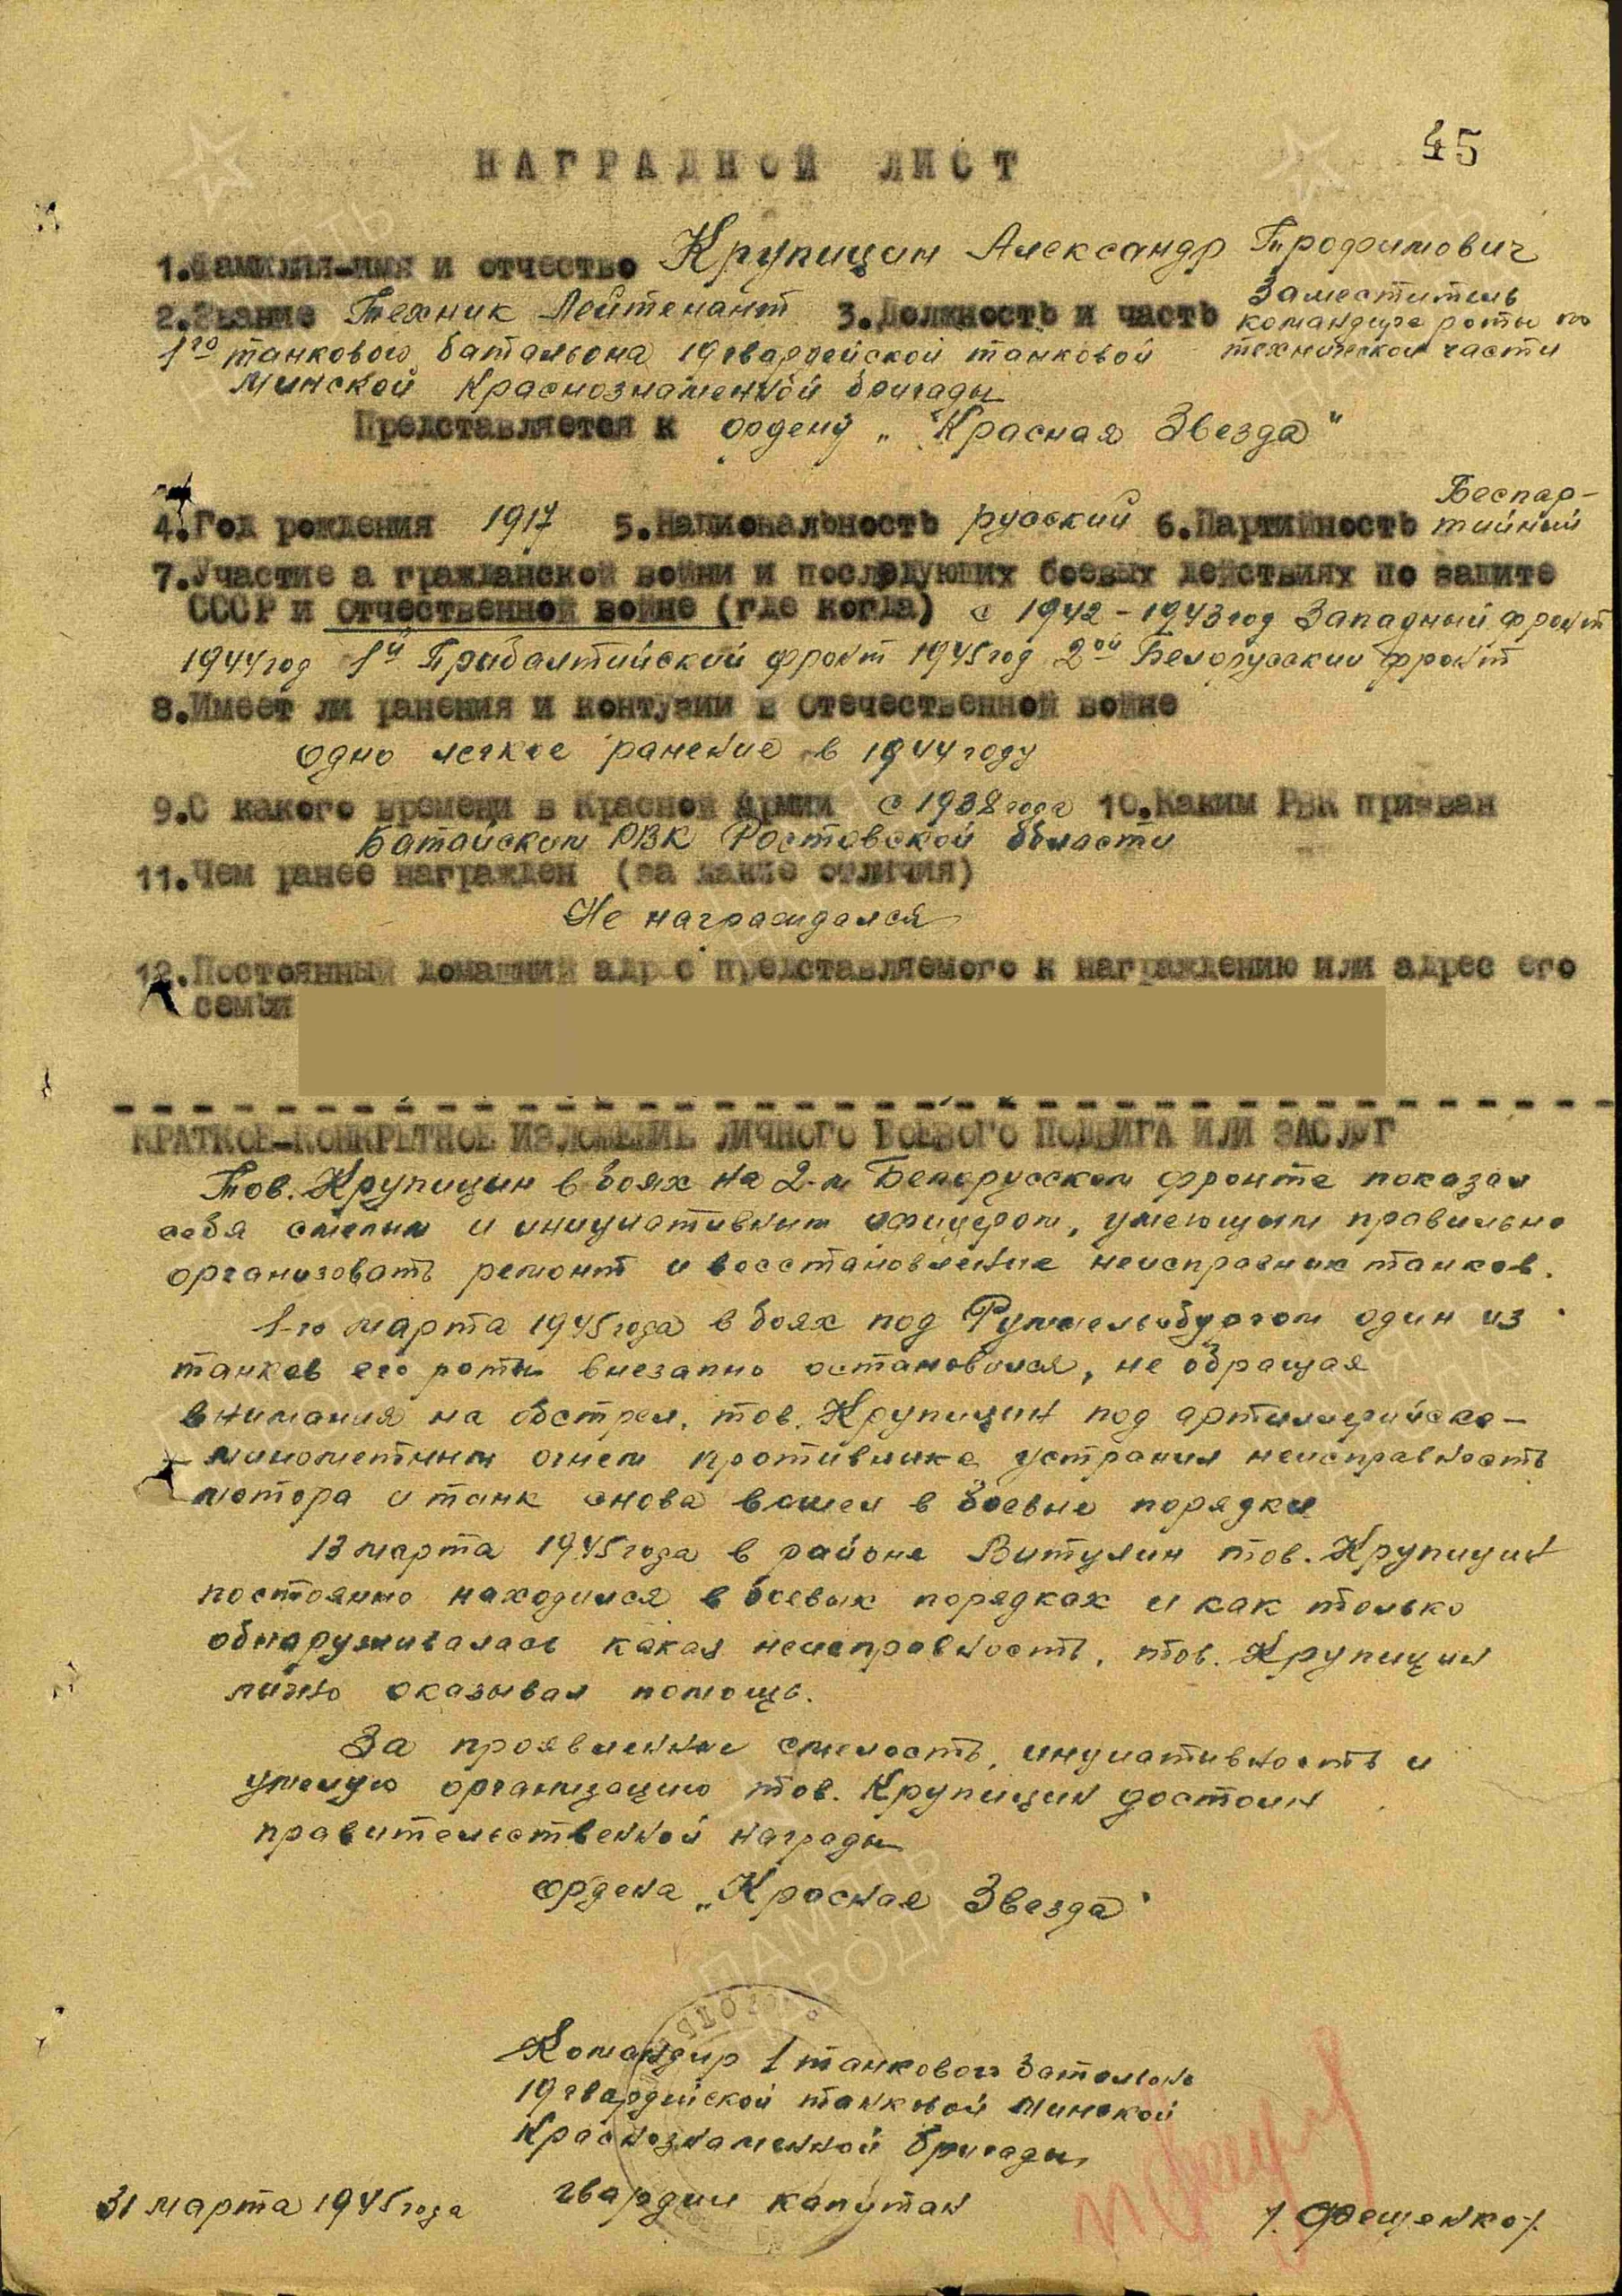 45
НАГРАДНОЙ ЛИСТ
1.Фамилия-имя и отчество Крупицин Александр Трофимович
2.Звание Техник Лейтенант 3.Должность и часть Заместитель
командира роты по
технической части
1го танкового батальона 19 гвардейской танковой
Минской Краснознаменной бригады
Представляется к ордену „Красная Звезда"
4.Год рождения 1917 5.Национальность русский 6.Партийность Беспар-
тийный
7.Участие а гражданской войни и последующих боевых действиях по защите
СССР и отчественной войне (где когда) с 1942-1943 год Западный фронт
1944 год 1й Прибалтийский фронт 1945 год 2ой Белорусский фронт
8.Имеет ли ранения и контузии в Отечественной войне
одно легкое ранение в 1944 году
9.С какого времени в Красной Армии с 1938 года 10.Каким РВК призван
Батайским РВК Ростовской области
11.Чем ранее награжден (за какие отличия)
Не награждался
12.Постоянный домашний адрес представляемого к награждению или адрес его
семьи
КРАТКОЕ-КОНКРЕТНОЕ ИЗЛОЖЕНИЕ ЛИЧНОГО БОЕВОГО ПОДВИГА ИЛИ ЗАСЛУГ
Тов. Крупицин в боях на 2-м Белорусском фронте показал
себя смелым и инициативным офицером, умеющим правильно
организовать ремонт и восстановление неисправных танков.
1-го марта 1945 года в боях под Руммельсбургом один из
танков его роты внезапно остановился, не обращая
внимания на обстрел, тов. Крупицин под артиллерийско-
минометным огнем противника устранил неисправность
мотора и танк снова вошел в боевые порядки
13 марта 1945 года в районе Витулин тов. Крупицин
постоянно находился в боевых порядках и как только
обнаруживалась какая неисправность, тов. Крупицин
лично оказывал помощь.
За проявленные смелость, инициативность и
умелую организацию тов. Крупицин достоин
правительственной награды
ордена „Красная Звезда"
Командир 1 танкового батальона
19 гвардейской танковой Минской
Краснознаменной бригады
гвардии капитан
/. Фещенко/.
31 марта 1945 года
ПАМЯТЬ
НАРОДА